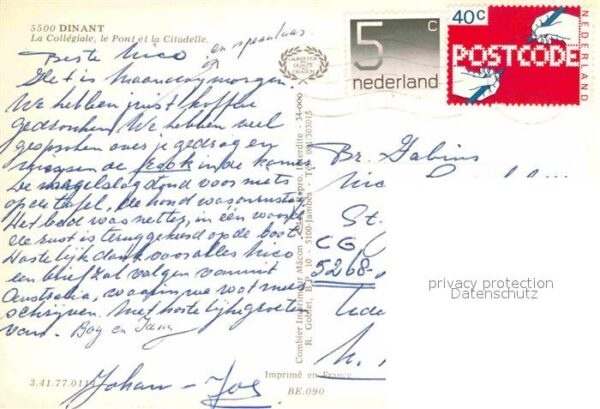 5500 DINANT
La Collégiale, le Pont et la Citadelle.
Beste Nico en speculaas.
Het is maandagmorgen.
We hebben juist koffie
gedronken. We hebben veel
gesproken over je gedrag en
missen de in de kamer
De stond voor niets
op de tafel, de hond was onrustig
Het bed was netter, in één woord
de rust is teruggekeerd op de boot.
Hartelijk dank voor alles Nico
een brief zal volgen vanuit
Australia, waarin we wat meer
schrijven. Met hartelijke groeten
van. Boy en
Johan - Jos
3.41.77.0114
CALIDAD D'OR
DE QUALITÉ
DE CRÉATION
Combier Imprimeur Mâcon Interdite - 34-000
R. Goblet, B.P. 10 - 5100-Jambes - Tél. 081-303015
Imprimé en France
BE.090
5c
nederland
40c
POSTCODE
NEDERLAND
Br. Gabinus
St.
CG
5268-
N.
privacy protection
Datenschutz